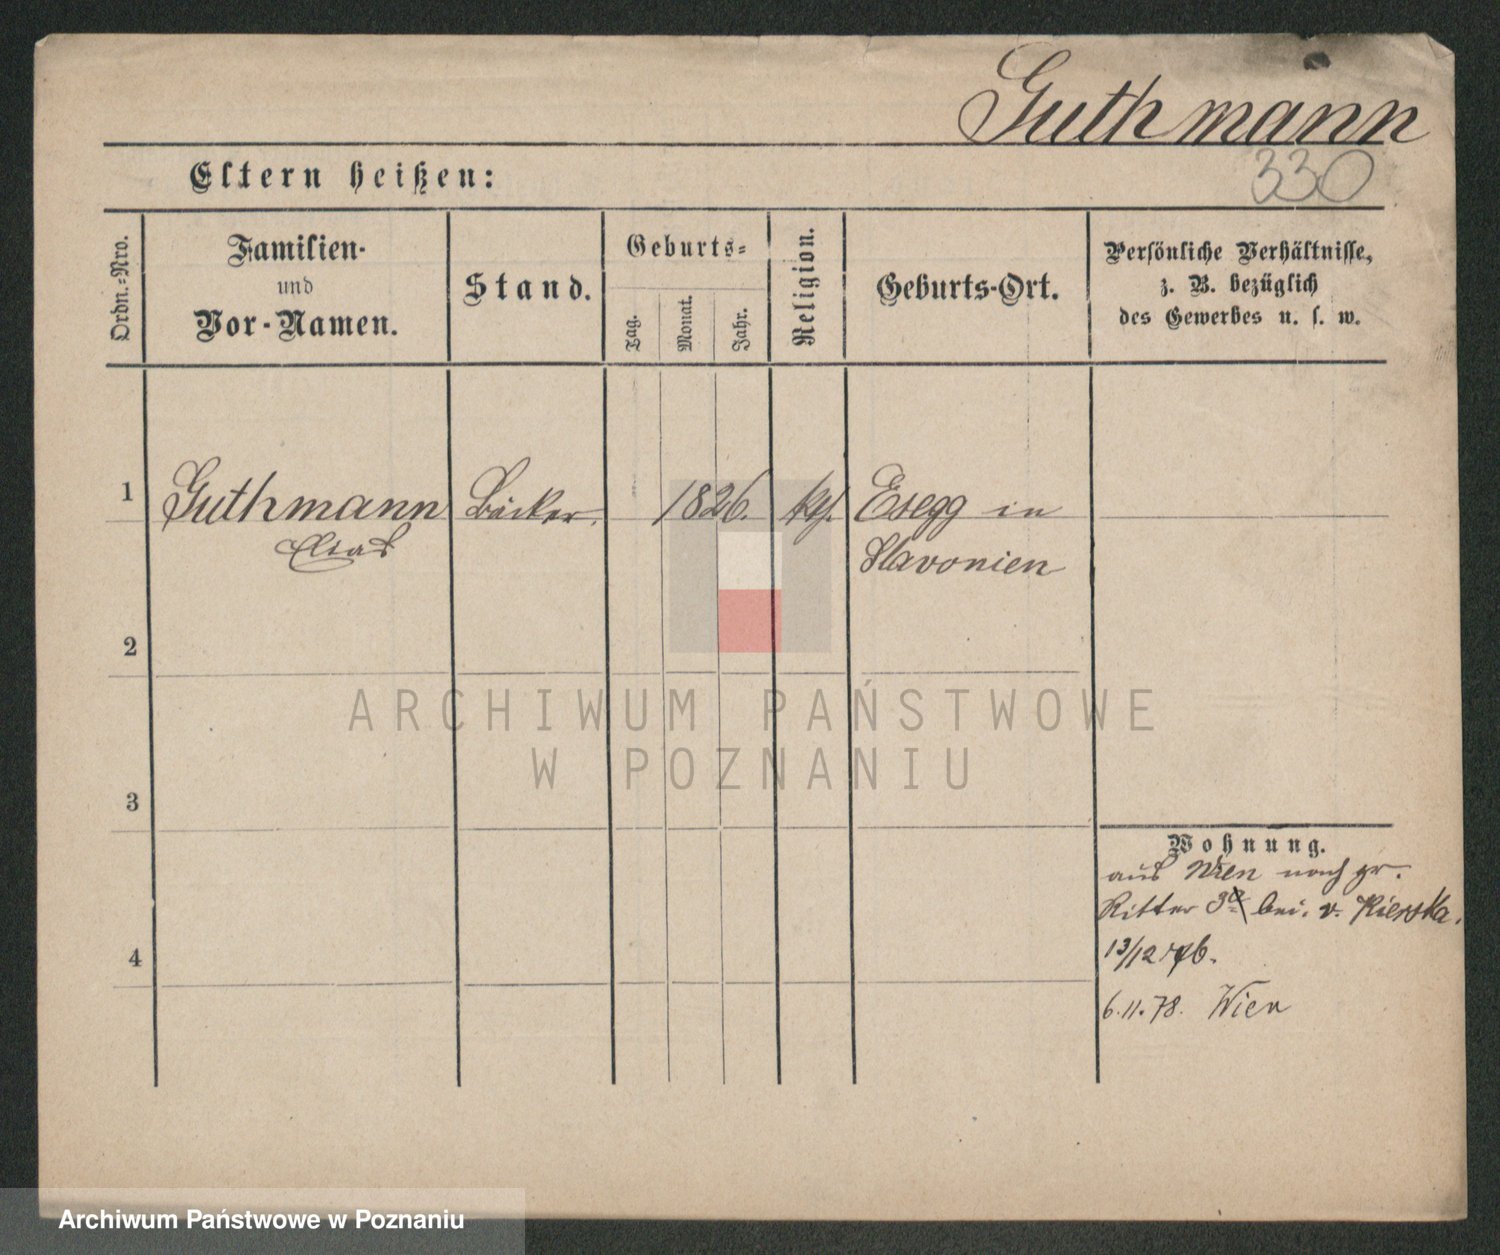 Guthmann
330
Eltern heißen:
Ordn.-Nro.
Familien-
und
Vor-Namen.
Stand.
Geburts-
Tag.
Monat.
Jahr.
Religion.
Geburts-Ort.
Persönliche Verhältnisse,
z. B. bezüglich
des Gewerbes u. s. w.
1 Guthmann Bäcker. 1826. kth. Esegg in
Elias Slavonien
2
3
4
Wohnung.
aus Wien nach gr.
Ritter bei v.
13/12 76.
6.11.78. Wien
ARCHIWUM PAŃSTWOWE
W POZNANIU
Archiwum Państwowe w Poznaniu